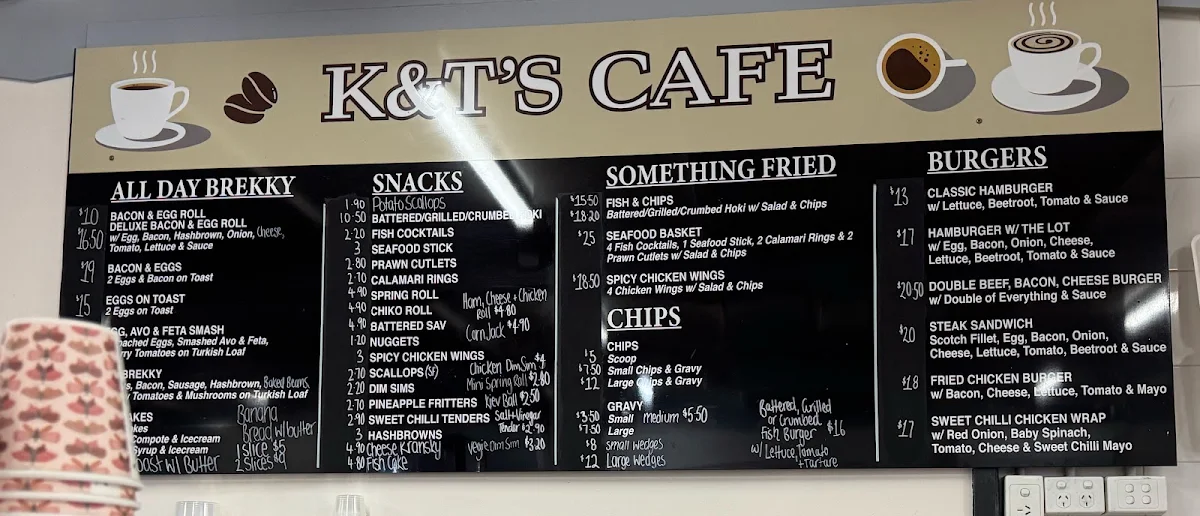 K&T'S CAFE
ALL DAY BREKKY
$10 BACON & EGG ROLL
DELUXE BACON & EGG ROLL
$16.50 w/ Egg, Bacon, Hashbrown, Onion, Cheese,
Tomato, Lettuce & Sauce
$19 BACON & EGGS
2 Eggs & Bacon on Toast
$15 EGGS ON TOAST
2 Eggs on Toast
AVO & FETA SMASH
Eggs, Smashed Avo & Feta,
Tomatoes on Turkish Loaf
BREKKY
Bacon, Sausage, Hashbrown, Baked Beans
Tomatoes & Mushrooms on Turkish Loaf
Compote & Icecream
Syrup & Icecream
w/ Butter
Banana
Bread w/ butter
1 slice $5
2 slices $9
SNACKS
1.90 Potato Scallops
10.50 BATTERED/GRILLED/CRUMBED HOKI
2.20 FISH COCKTAILS
3 SEAFOOD STICK
2.80 PRAWN CUTLETS
2.70 CALAMARI RINGS
4.90 SPRING ROLL
4.90 CHIKO ROLL
4.90 BATTERED SAV
1.20 NUGGETS
3 SPICY CHICKEN WINGS
2.70 SCALLOPS (SF)
2.20 DIM SIMS
2.70 PINEAPPLE FRITTERS
2.90 SWEET CHILLI TENDERS
3 HASHBROWNS
4.90 Cheese Kransky
4.80 Fish Cake
Ham, Cheese + Chicken
Roll $4.80
Corn Jack $4.90
Chicken Dim Sim $4
Mini Spring Roll $2.80
Kiev Ball $2.50
Salt + Vinegar
Tender $2.90
Vegie Dim Sim $3.20
SOMETHING FRIED
$15.50 FISH & CHIPS
$18.20 Battered/Grilled/Crumbed Hoki w/ Salad & Chips
$25 SEAFOOD BASKET
4 Fish Cocktails, 1 Seafood Stick, 2 Calamari Rings & 2
Prawn Cutlets w/ Salad & Chips
$18.50 SPICY CHICKEN WINGS
4 Chicken Wings w/ Salad & Chips
CHIPS
CHIPS
$5 Scoop
$7.50 Small Chips & Gravy
$12 Large Chips & Gravy
GRAVY
$3.50 Small Medium $5.50
$7.50 Large
$8 Small Wedges
$12 Large Wedges
Battered, Grilled
or Crumbed
Fish Burger $16
w/ Lettuce, Tomato
+ Tartare
BURGERS
$13 CLASSIC HAMBURGER
w/ Lettuce, Beetroot, Tomato & Sauce
$17 HAMBURGER W/ THE LOT
w/ Egg, Bacon, Onion, Cheese,
Lettuce, Beetroot, Tomato & Sauce
$20.50 DOUBLE BEEF, BACON, CHEESE BURGER
w/ Double of Everything & Sauce
$20 STEAK SANDWICH
Scotch Fillet, Egg, Bacon, Onion,
Cheese, Lettuce, Tomato, Beetroot & Sauce
$18 FRIED CHICKEN BURGER
w/ Bacon, Cheese, Lettuce, Tomato & Mayo
$17 SWEET CHILLI CHICKEN WRAP
w/ Red Onion, Baby Spinach,
Tomato, Cheese & Sweet Chilli Mayo